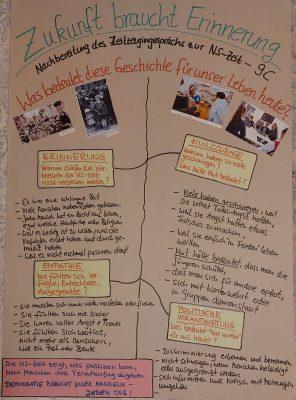 Zukunft braucht Erinnerung
Nachbereitung des Zeitzeugengesprächs zur NS-Zeit - 9C
Was bedeutet diese Geschichte für unser Leben heute?
ERINNERUNG
Warum dürfen die Verbrechen der NS-Zeit
nicht vergessen werden?
- Es war eine schlimme Zeit
- Viele Menschen haben ihr Leben gelassen
- Jeder Mensch hat ein Recht auf Leben,
egal welche Hautfarbe oder Religion
- Weil es wichtig ist zu wissen, was die
Verfolgten erlebt haben und durchgemacht haben
- was es nicht nochmal passieren darf
EMPATHIE
Wie fühlten sich Verfolgte, Entrechtete,
Ausgegrenzte?
- Sie mussten sich immer wieder verstecken oder fliehen
- Sie fühlten sich nie sicher
- Sie waren voller Angst + Trauer
- Sie fühlten sich wertlos,
nicht mehr als Menschen,
wie ein Tier oder Beute
Die NS-Zeit zeigt, was passieren kann,
wenn Menschen ihre Verantwortung abgeben.
DEMOKRATIE BRAUCHT UNSER HANDELN -
JEDEN TAG!
ZIVILCOURAGE
Warum haben so viele
geschwiegen?
Was hätte Mut bedeutet?
- Viele haben geschwiegen, weil
sie selbst Todes-Angst hatten,
- weil sie Angst hatten etwas
Falsches zu machen,
- weil sie einfach in "Frieden" leben
wollten
- Mut hätte bedeutet, dass man die
Jüngeren schützt,
- dass man sich für andere opfert,
- sich mit Worten wehrt oder
in Gruppen demonstriert
POLITISCHE
VERANTWORTUNG
Was bedeutet "Nie wieder"
für uns heute?
- Diskriminierung erkennen und benennen
- nicht schweigen, wenn Menschen beleidigt
oder ausgegrenzt werden
- sich informieren und kritisch mit Meinungen
umgehen